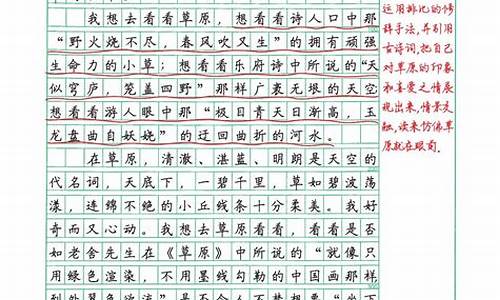 我想去看看草原，想看看诗人口中那
“野火烧不尽，春风吹又生”的拥有顽强
生命力的小草；想看看乐府诗中所说的“天
似穹庐，笼盖四野”那样广袤无垠的天空
想看看游人眼中那“极目青天日渐高，玉
龙盘曲自妖娆”的迂回曲折的河水。
在草原，清澈、湛蓝、明朗是天空的
代名词，天底下，一碧千里，草如碧波荡
漾，连绵不绝的小丘线条十分柔美。我好
奇而又心动。我想去草原，看看看是否
如老舍先生在《草原》中所说的“就像只
用绿色渲染，不用墨线勾勒的中国画那样
运用排比的修
辞手法，并引用
古诗词，把自己
对草原的印象
和喜爱之情展
现出来，情景交
融，读来仿佛草
原就在眼前。